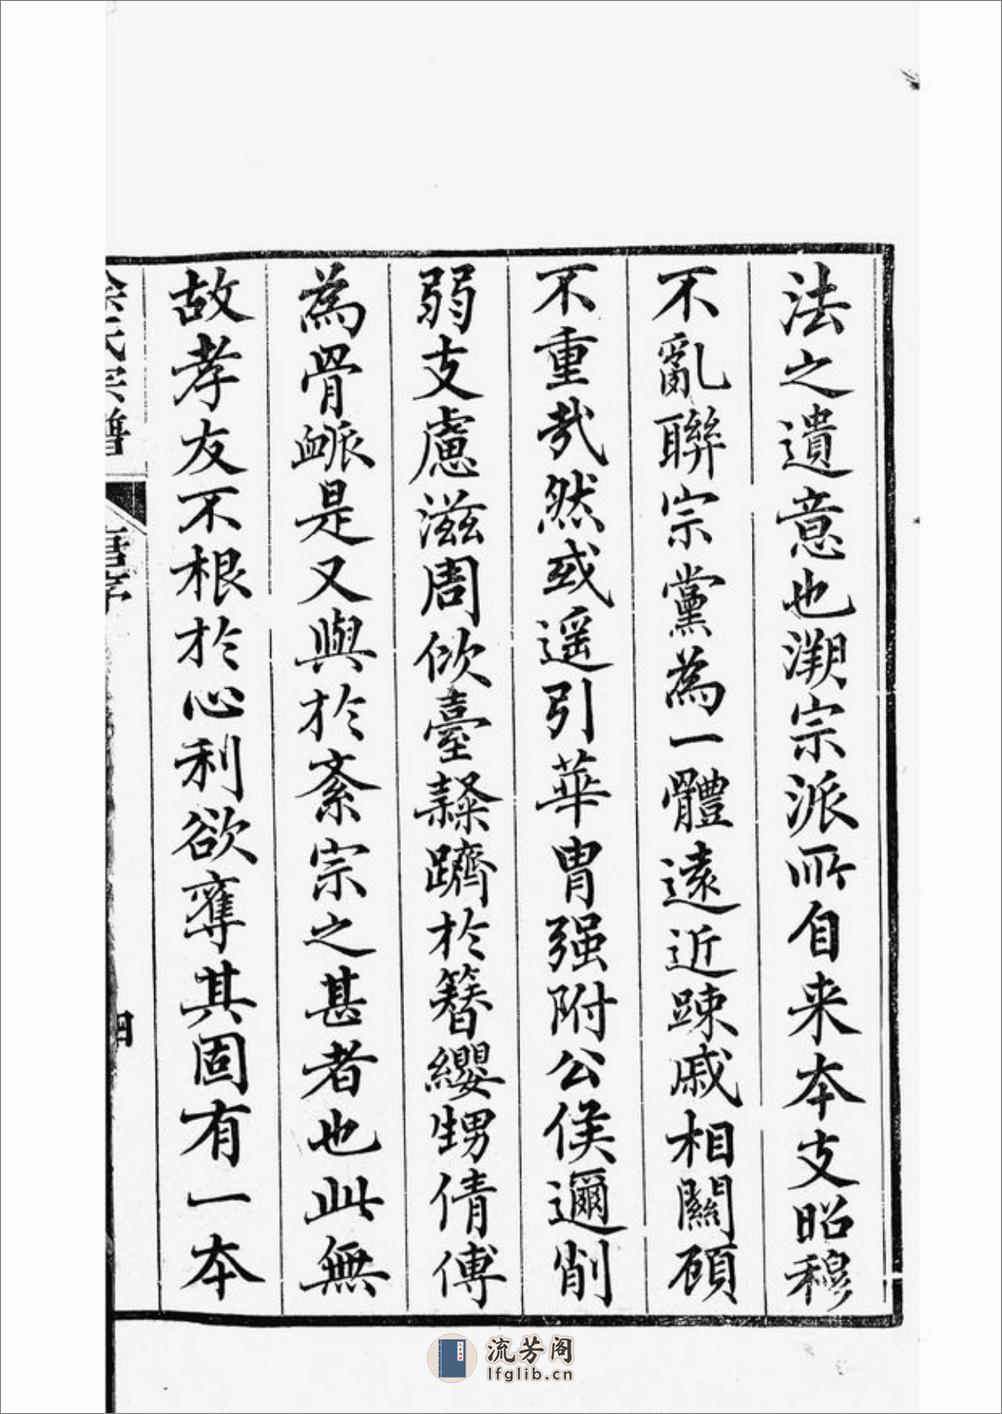 法之遺意也溯宗派所自来本支昭穆
不亂聯宗黨為一體遠近踈戚相關顧
不重哉然或遥引華胄强附公侯邇削
弱支慮滋周倣臺隸躋於簪纓甥倩傅
為骨䘑是又與於紊宗之甚者也此無
故孝友不根於心利欲奪其固有一本
余氏宗譜
四
流芳阁
lfglib.cn